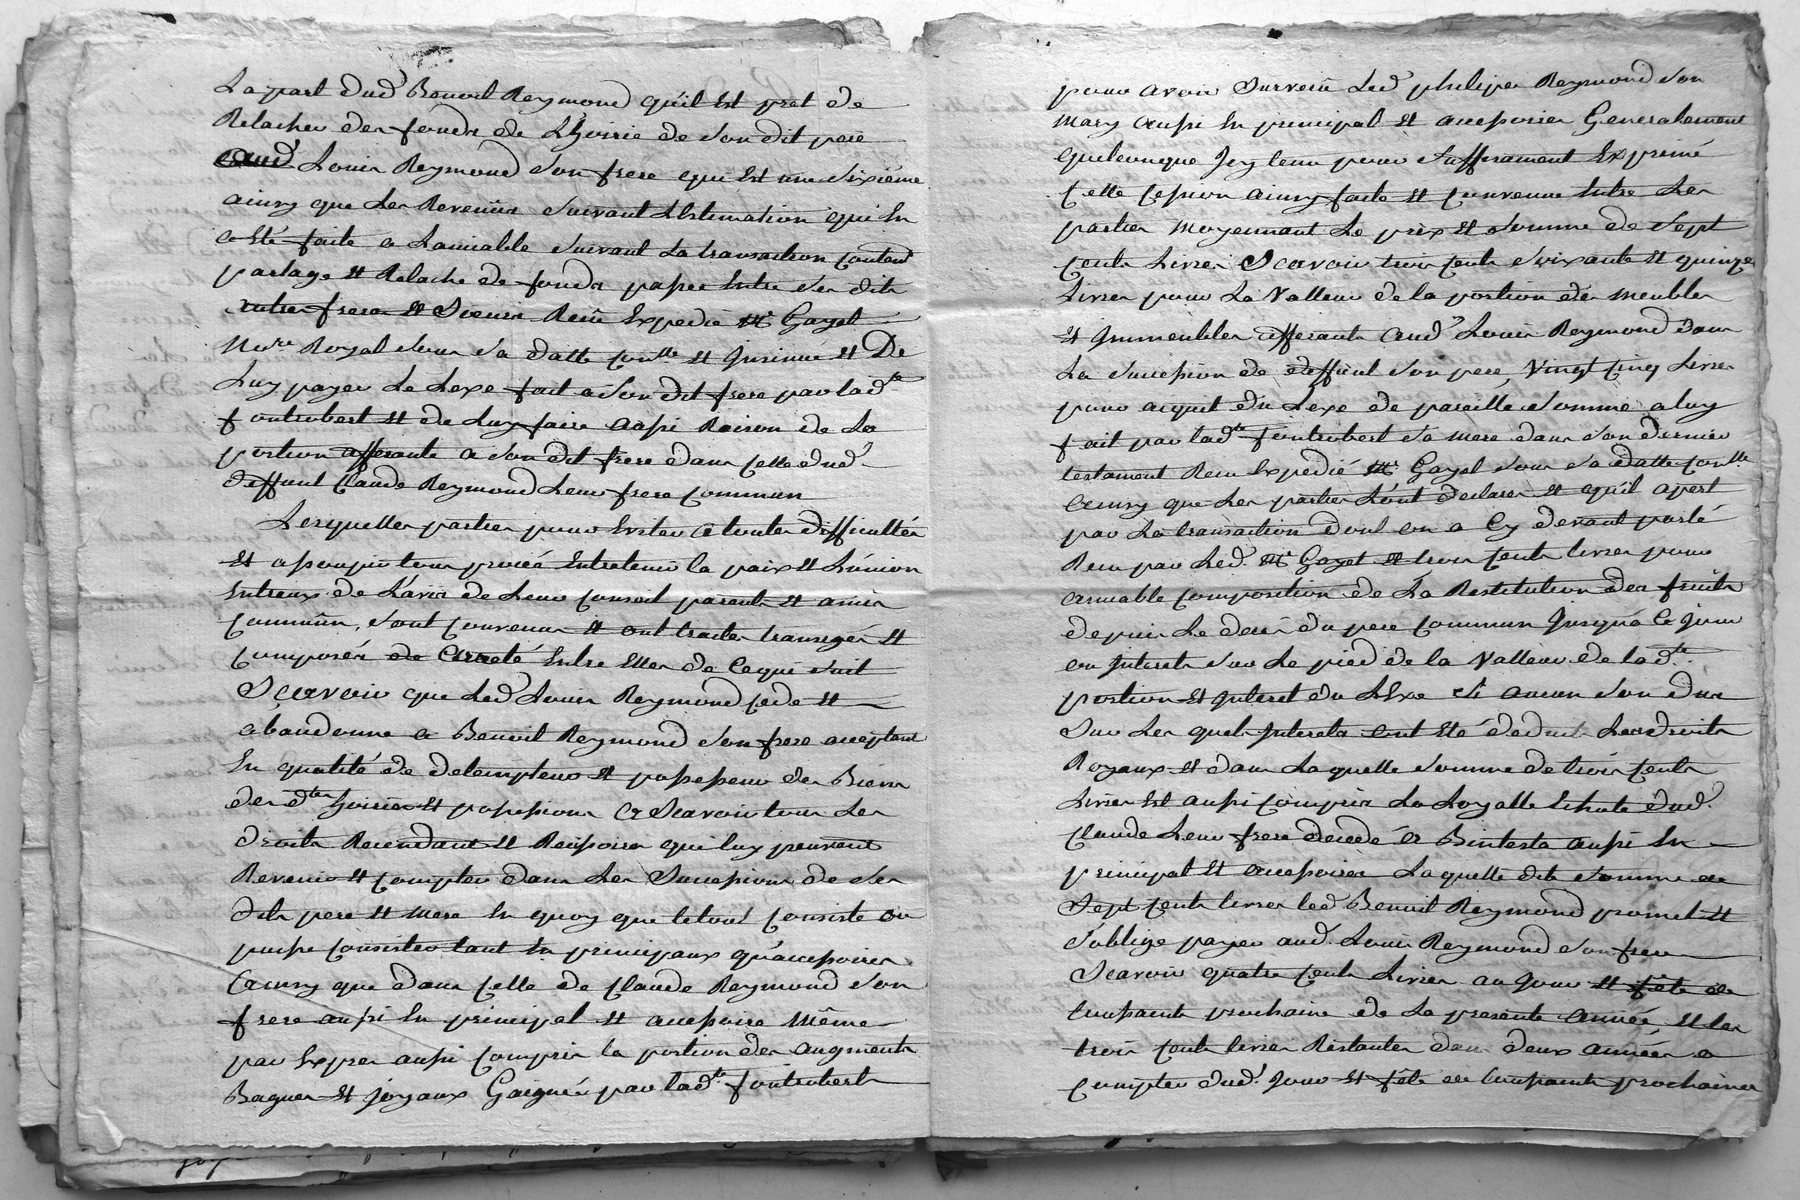 La part dud Benoit Reymond qu'il Est pret de
Relacher des fonds de L'hoirie de son dit pere
aud Louis Reymond son frere qui Est un sixiéme
ainsy que Les Revenus suivant L'Estimation qui En
a Eté faite a Lamiable suivant La transaction contenᵗ
partage Et Relache de fonds passée Entre ses dits
autres freres Et Soeurs Reçüe Expedié Mᵉ Gayet
Noʳᵉ Royal sous sa datte conˡˡᵉ Et Insinué Et De
Luy payer Le Lexe fait a son dit frere par ladᵗᵉ
fontrobert Et de Luy faire aussi Raison de La
portion afferante a son dit frere dans celle dud.
deffunt Claude Reymond Leur frere commun
Lesquelles parties pour Eviter a toutes difficultés
Et assoupir tous procés Entretenir la paix Et L'union
Entreux de L'avis de Leur Conseil parents Et amis
communs, sont convenus Et ont traités transigés Et
composés de Entre Elles de Ce qui suit
Scavoir que Led Louis Reymond cede Et
abandonne a Benoit Reymond son frere acceptant
En qualité de detempteur Et possesseur des Biens
des dᵗᵉˢ hoiries Et possessions a Scavoir tous Les
droits Rescendants Et Rescisoires qui luy peuvent
Revenir Et compter dans Les Successions de ses
dits pere Et mere En quoy que le tout consiste ou
puisse consister tant En principaux qu'accessoires
ainsy que dans celle de Claude Reymond son
frere aussi En principal Et accessoire même
par Exprés aussi compris la portion des augments
Bagues Et joyaux Gaignés par ladᵗᵉ fontrobert
pour avoir Survecu Led philipes Reymond son
mary aussi En principal Et accessoires Generalement
quelconque Icy tenu pour suffisament Exprimé
Cette cession ainsy faite Et convenue Entre Les
parties moyennant Le prix Et somme de Sept
cents Livres Scavoir trois cents soixante Et quinze
Livres pour La Valleur de la portion des meubles
Et Immeubles afferants aud. Louis Reymond dans
La succession de deffunt son pere, Vingt Cinq Livres
pour acquit du Lexe de pareille somme a luy
fait par ladᵗᵉ fontrobert sa mere dans son dernier
testament Reçu Expedié Mᵉ Gayet sous sa datte conˡˡᵉ
ainsy que Les parties L'ont declarés Et qu'il apert
par La transaction dont on a Cy devant parlé
Reçu par Led. Mᵉ Gayet Et trois cents livres pour
amiable composition de La Restitution des fruits
depuis Le decés du pere commun Jusqu'a Ce jour
ou Interets sur Le pied de la Valleur de ladᵗᵉ
portion Et Interet du Lexe si aucun son dus
sur Les quels Interets ont Eté deduits Les droits
Royaux Et dans Laquelle somme de trois cents
Livres Est aussi compris La Loyalle Echute dud.
Claude Leur frere decedé ab Intesta aussi En
principal Et accessoires Laquelle dite somme de
Sept cents livres led Benoit Reymond promet Et
s'oblige payer aud. Louis Reymond son frere
Scavoir quatre cents Livres au jour Et fête de
toussaints prochaine de La presente année, Et les
trois cents livres Restantes dans deux années a
compter dud. jour Et fête de toussaints prochaines